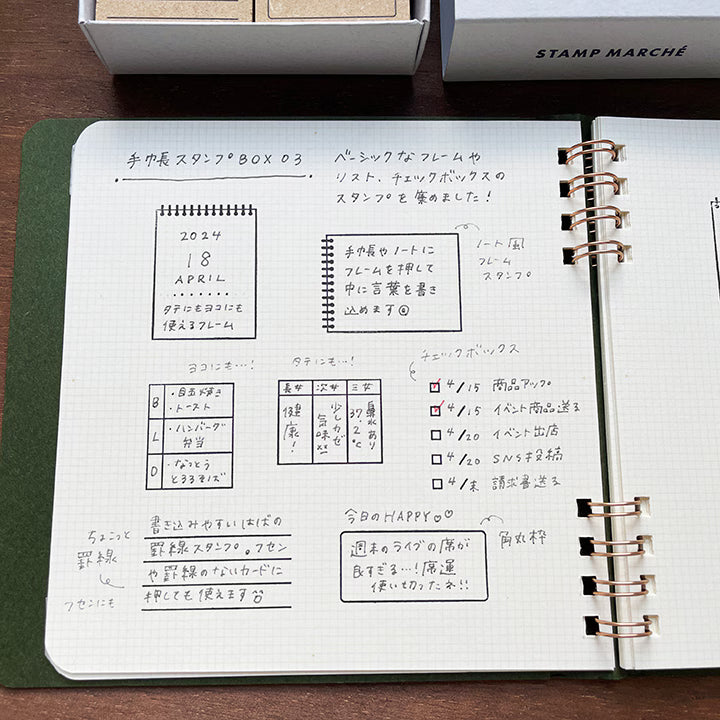 STAMP MARCHÉ
手帳スタンプBOX 03
ベーシックなフレームや
リスト、チェックボックスの
スタンプを集めました!
2024
18
APRIL
タテにもヨコにも
使えるフレーム
手帳やノートに
フレームを押して
中に言葉を書き
込めます
ノート風
フレーム
スタンプ
ヨコにも…!
B
・目玉焼き
・トースト
L
・ハンバーグ
弁当
D
・なっとう
とろろそば
タテにも…!
長女
次女
三女
健康!
少しカゼ
気味××
鼻水あり
37.2℃
チェックボックス
4/15 商品アップ
4/15 イベント商品送る
4/20 イベント出店
4/20 SNS投稿
4/末 請求書送る
ちょこっと
罫線
フセンにも
書き込みやすいはばの
罫線スタンプ。フセン
や罫線のないカードに
押しても使えます
今日のHAPPY♡♡
角丸枠
週末のライブの席が
良すぎる…!席運
使い切ったネ!!